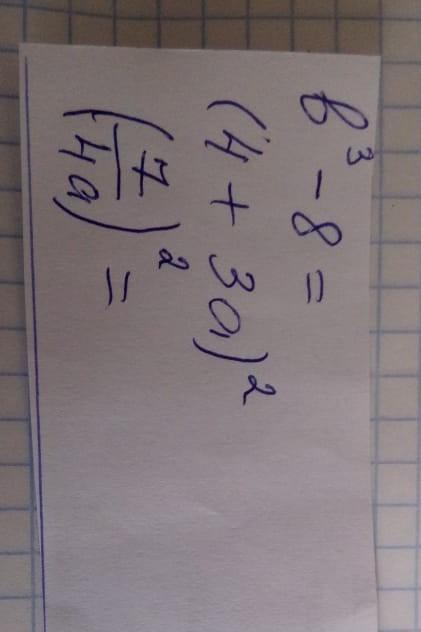 b³ - 8 =
(4 + 3a)²
(7/4a)² =